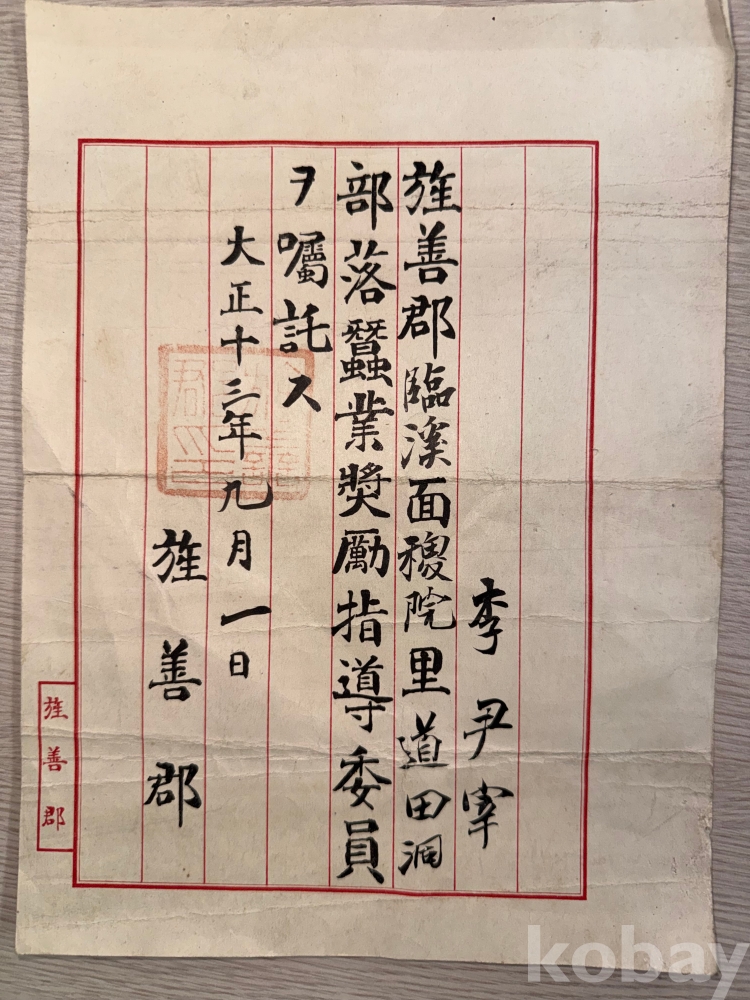 李尹宰
旌善郡臨溪面稷院里道田洞
部落蠶業奬勵指導委員
ヲ囑託ス
大正十三年九月一日
旌善郡
旌善郡
kobay